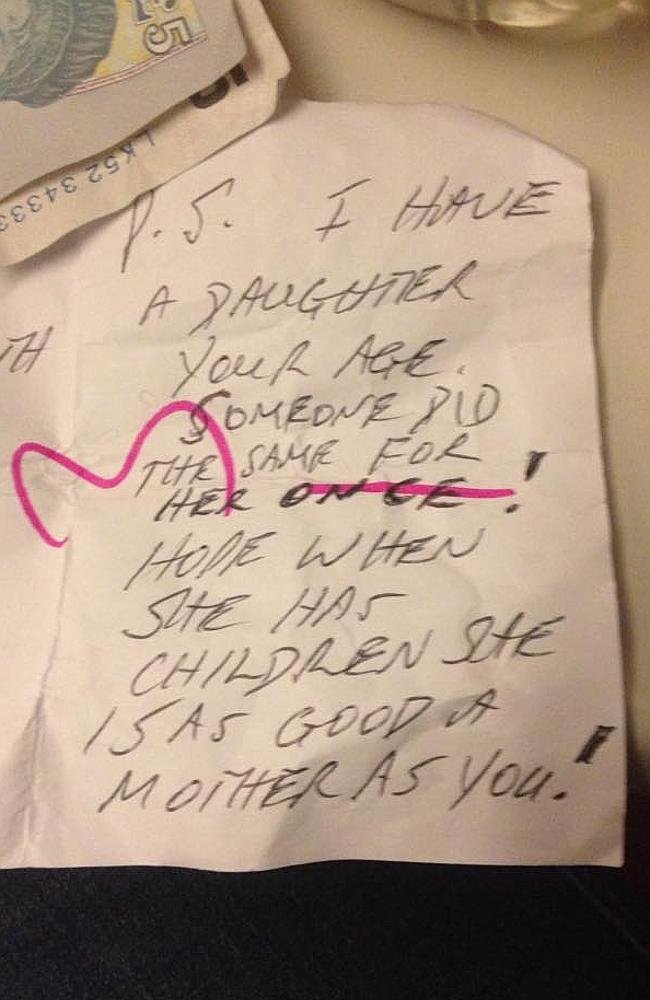 £5
LK52 34333
P.S. I HAVE
A DAUGHTER
YOUR AGE.
SOMEONE DID
THE SAME FOR
HER ONCE!
HOPE WHEN
SHE HAS
CHILDREN SHE
IS AS GOOD A
MOTHER AS YOU.!
TH